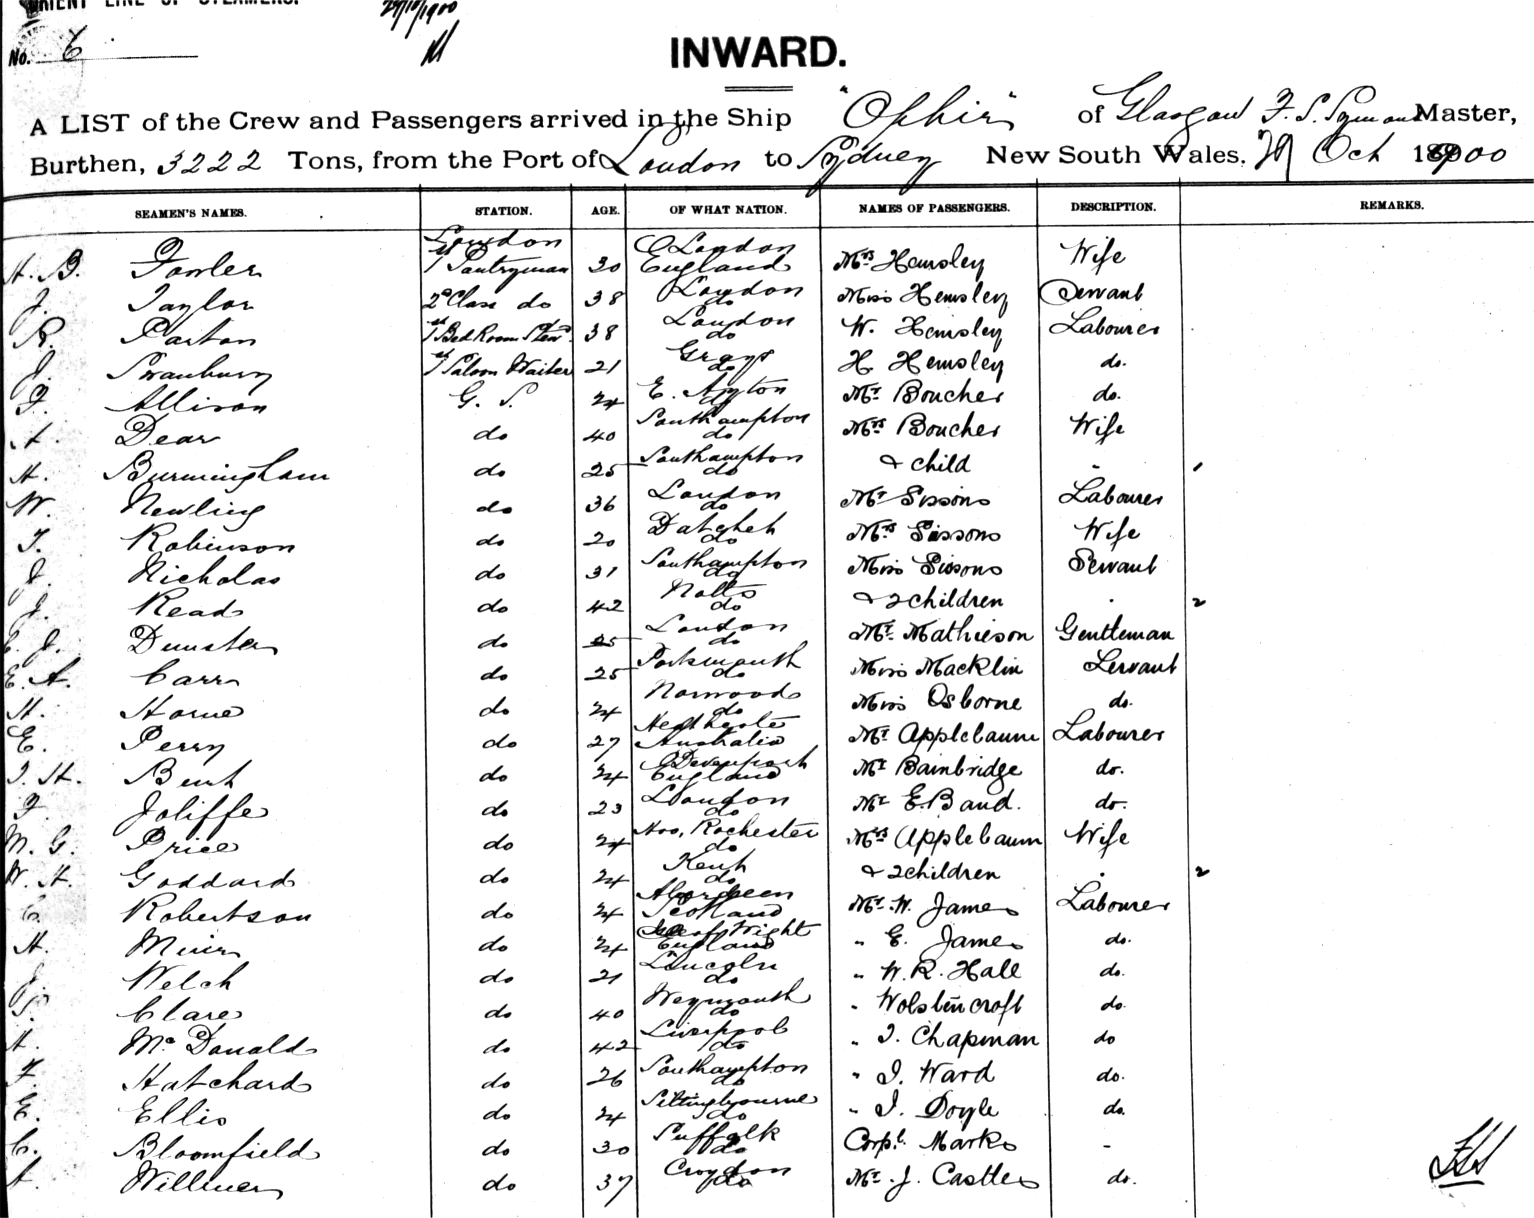 ORIENT LINE OF STEAMERS.
29/10/1900
No. 6
INWARD.
A LIST of the Crew and Passengers arrived in the Ship "Ophir" of Glasgow F. S. Symons Master,
Burthen, 3222 Tons, from the Port of London to Sydney New South Wales, 29 Oct 1900
SEAMEN'S NAMES. STATION. AGE. OF WHAT NATION. NAMES OF PASSENGERS. DESCRIPTION. REMARKS.
London London
H. B. Fowler 1st Pantryman 30 England Mrs Hemsley Wife
J. Taylor 2d Class do 38 London do Miss Hemsley Servant
R. Paxton 1st Bed Room Stew 38 London do W. Hemsley Labourer
J. Swanbury 1st Saloon Waiter 21 Grays do H. Hemsley do.
F. Allison G. S. 24 E. Ayton do Mr Boucher do.
A. Dear do 40 Southampton do Mrs Boucher Wife
H. Burmingham do 25 Southampton do & child " 1
W. Newling do 36 London do Mr Sissons Labourer
T. Robinson do 20 Datchet do Mrs Sissons Wife
J. Nicholas do 31 Southampton do Miss Sissons Servant
J. Read do 42 Notts do & 2 children . 2
E. J. Dunster do 25 London do Mr. Mathieson Gentleman
E. A. Carr do 25 Portsmouth do Miss Macklin Servant
H. Horne do 24 Norwood do Miss Osborne do.
E. Perry do 27 Australia Mr Applebaum Labourer
J. H. Bent do 24 Devonport England Mr Bainbridge do.
F. Joliffe do 23 London do Mr E Band. do.
M. G. Price do 24 Hoo, Rochester do Mrs Applebaum Wife
W. H. Goddard do 24 Kent do & 2 children . 2
C. Robertson do 24 Aberdeen Scotland Mr. W. James Labourer
H. Muir do 24 Isle of Wight England " E. James do.
J. Welch do 21 Lincoln do " W. R. Hall do.
Clare do 40 Weymouth do " Wolstencroft do
A. McDonald do 42 Liverpool do " J. Chapman do
F. Hatchard do 26 Southampton do " J. Ward do.
E. Ellis do 24 Sittingbourne do " J. Doyle do.
C. Bloomfield do 30 Suffolk do Corpl. Marks -
A. Willmer do 37 Croydon do Mr. J. Castles do.